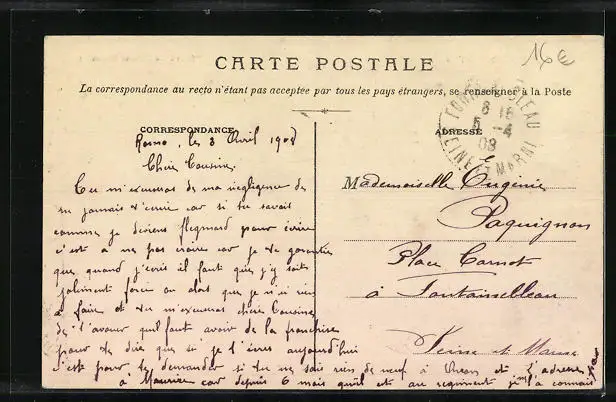 16€
CARTE POSTALE
La correspondance au recto n'étant pas acceptée par tous les pays étrangers, se renseigner à la Poste
CORRESPONDANCE
le 3 Avril 1908
Chère Cousine,
Tu m'excuseras de ma négligence de
ne jamais t'écrire car si tu savait
comme je deviens flegmard pour écrire
c'est a ne pas croire car je te garantie
que quand j'écris il faut que j'y soit
joliment forcé ou alors que je n'ai rien
a faire et tu m'excuseras chère Cousine
de t'avouer qu'il faut avoir de la franchise
pour te dire que si je t'écris aujourd'hui
c'est pour te demander si tu ne sais rien de neuf à et l'adresse
à Maurice car depuis 6 mois qu'il et au regiment j'n'ai connait
ADRESSE
FONTAINEBLEAU
6 15
5 -4
08
SEINE ET MARNE
Mademoiselle Eugénie
Paquignon
Place Carnot
à Fontainebleau
Seine et Marne